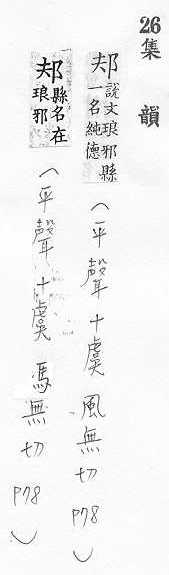 26集韻
邞 說文琅邪縣一名純德(平聲十虞風無切P78)
邞 縣名在琅邪(平聲十虞馮無切P78)